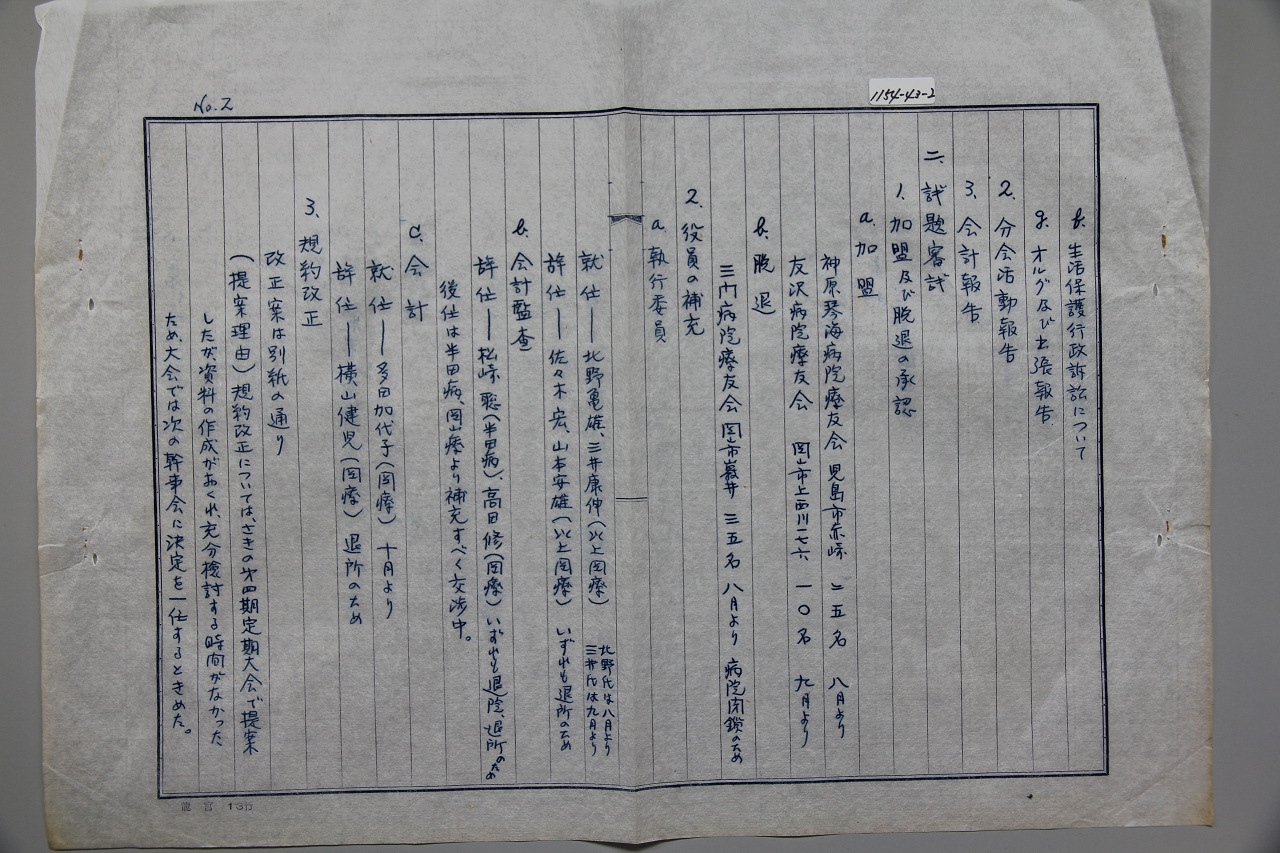 No.2
1154-43-2
f. 生活保護行政訴訟について
g. オルグ及び出張報告
2. 分会活動報告
3. 会計報告
二、試題審試
1. 加盟及び脱退の承認
a. 加盟
神原琴海病院療友会 児島市赤崎 二五名 八月より
友沢病院療友会 岡山市上西川一七六 一〇名 九月より
b. 脱退
三門病院療友会 岡山市巌井 三五名 八月より 病院閉鎖のため
2、役員の補充
a. 執行委員
就任――北野亀雄、三井康伸(以上岡療) 北野氏は八月より
三井氏は九月より
辞任――佐々木宏、山本安雄(以上岡療) いずれも退所のため
b. 会計監査
辞任――松崎聡(半田病)、高田修(岡療) いずれも退院、退所のため
後任は半田病、岡山療より補充すべく交渉中。
c. 会計
就任――多田加代子(岡療) 十月より
辞任――横山健児(岡療) 退所のため
3、規約改正
改正案は別紙の通り
(提案理由) 規約改正については、さきの第四期定期大会で提案
したが、資料の作成がおくれ、充分検討する時間がなかった
ため、大会では次の幹事会に決定を一任するときめた。
龍宮 13行